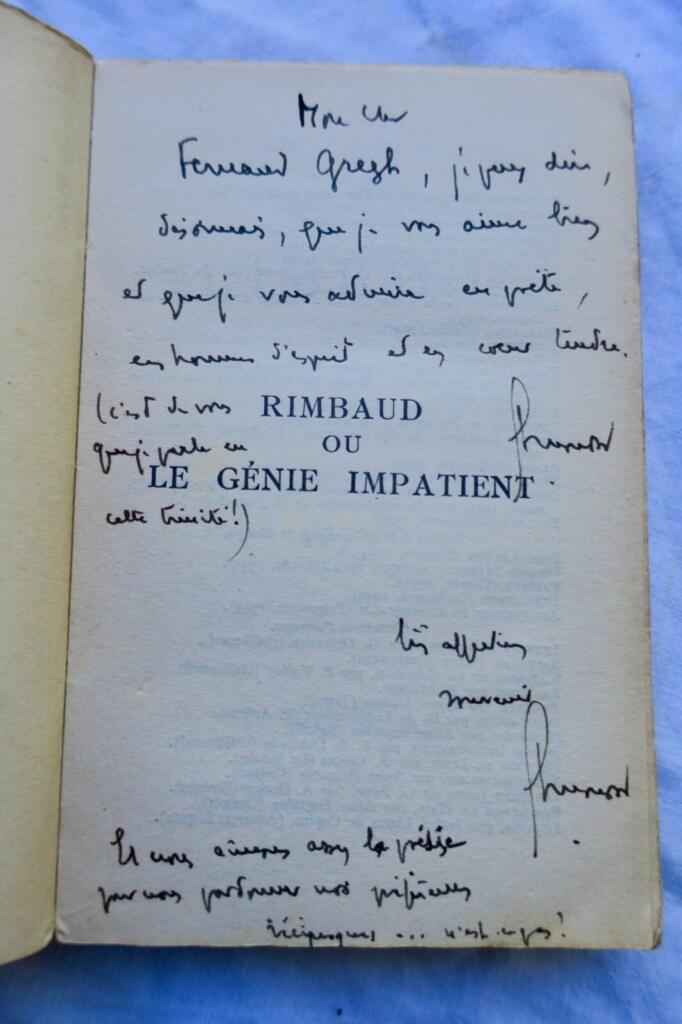 Mon cher
Fernand Gregh, je puis dire,
désormais, que je vous aime bien
et que je vous admire en poète,
en homme d'esprit et en coeur tendre.
(c'est de vous
RIMBAUD
OU
que je parle en
LE GÉNIE IMPATIENT
cette trinité!)
Très affectueux
merci
Et nous aimons assez la poésie
pour nous pardonner nos préférences
réciproques ... n'est-ce pas!